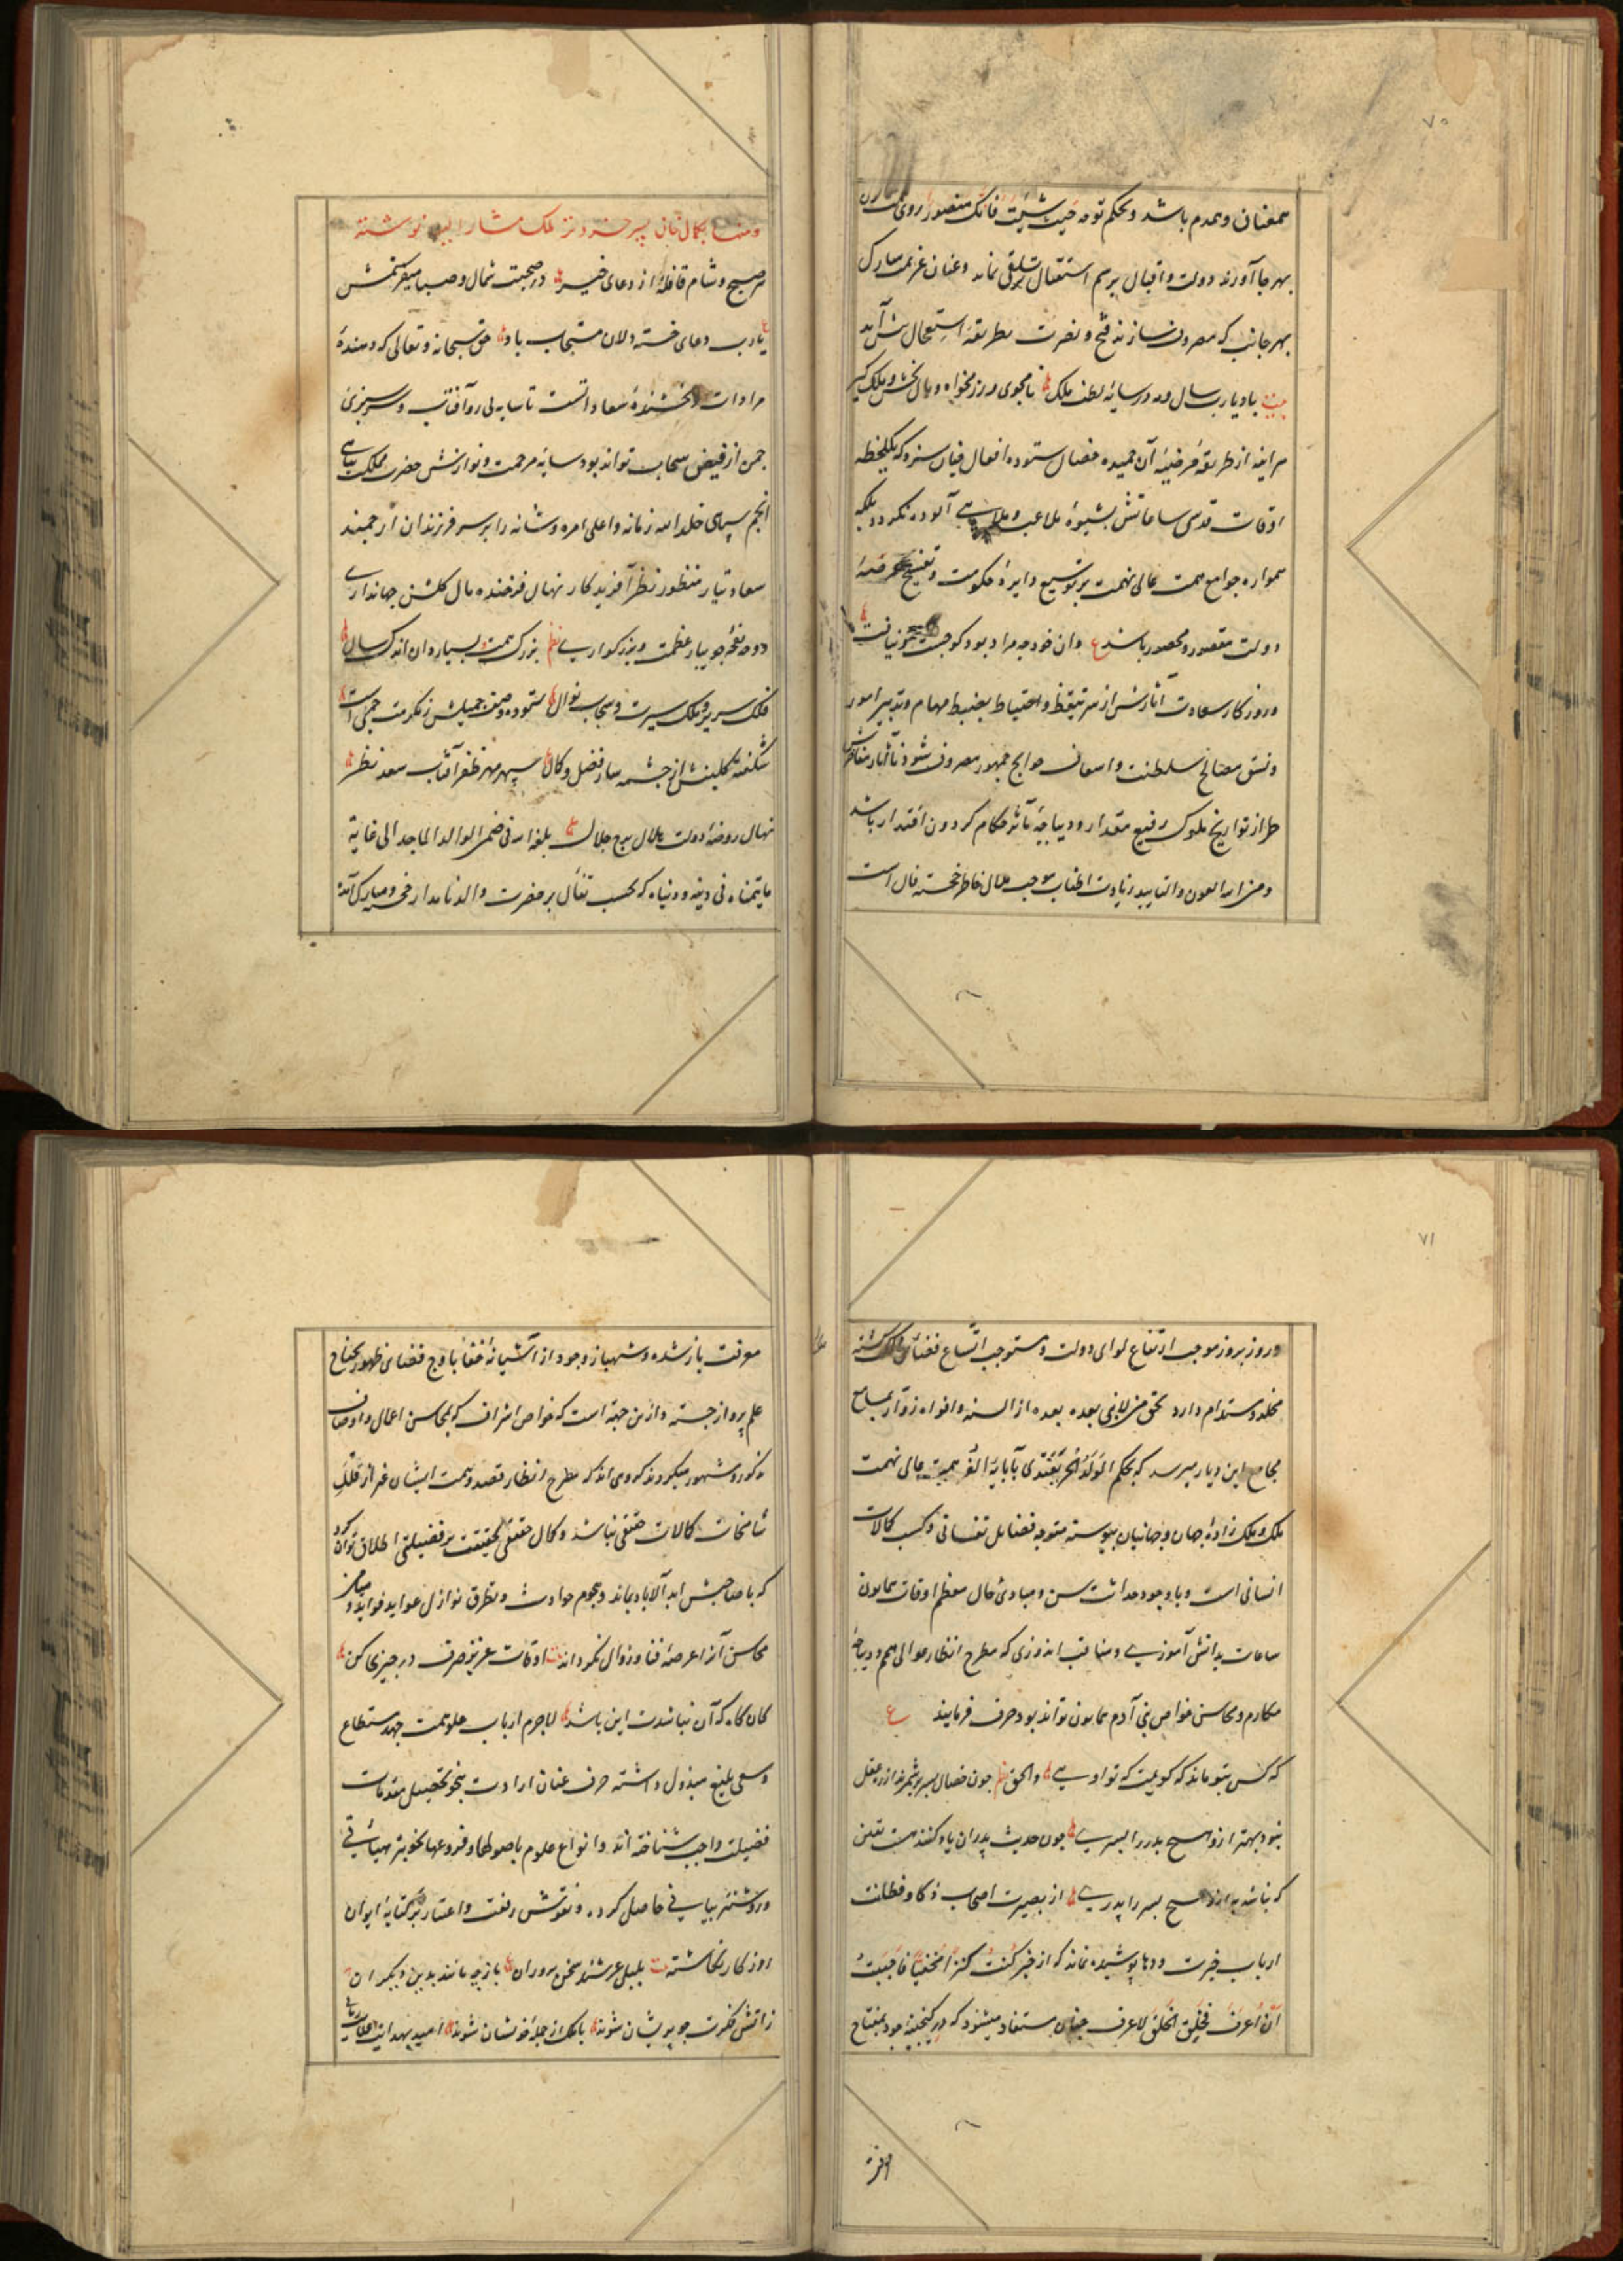 ۷۰
همعنان و همدم باشد و بحکم توجه حیث شئت فانک منصور روی
بهر جا آورند دولت و اقبال برسم استقبال تلقی نماید و عنان عزیمت مبارک
بهر جانب که مصروف سازند فتح و نصرت بطریقه استعجال پیش آید
بیت باد یارب سال و مه در سایه لطف ملک نامجوی و رزمخواه و مال بخش و ملک گیر
هر آینه از طریقه مرضیه آن حمیده خصال ستوده افعال چنان سزد که یکلحظه
اوقات قدسی ساعاتش بشیوه ملاعب و ملاهی آلوده نگردد بلکه
همواره جوامع همت عالی نهمت بر توسیع دایره حکومت و تفسیح عرصه
دولت مقصور و محصور باشد ع وان خود چه مراد بود کو جست و نیافت
و روزگار سعادت آثارش از سر تیقظ و احتیاط بضبط مهام و تدبیر امور
و نسق مصالح سلطنت و اسعاف حوایج جمهور مصروف شود تا آثار مفاخرش
طراز تواریخ ملوک رفیع مقدار و دیباجه مآثر حکام گردون اقتدار باشد
و من الله العون و التایید زیادت اطناب موجب ملال خاطر خجسته فال است
بکمال ثانی پسر ملک مشار الیه نوشته
هر صبح و شام قافلهٔ از دعای خیر در صحبت شمال و صبا میفرستمش
ع یارب دعای خسته دلان مستجاب باد حق سبحانه و تعالی که دهندهٔ
مرادات و بخشندهٔ سعاداتست تا سایه بی رو آفتاب و سرسبزی
چمن از فیض سحاب تواند بود سایه مرحمت و نوازش حضرت مملکت پناهی
انجم سپاهی خلد الله زمانه و اعلی امره و شانه را بر سر فرزندان ارجمند
سعادتیار منظور نظر آفریدگار نهال فرخنده مال گلشن جهانداری
دوحه جویبار عظمت و بزرگواری نظم بزرگ همت بسیاردان اندک سال
فلک سریر و ملک سیرت و سحاب نوال ستوده وصف جمیلش ز مکرمت
شکفته گلبنش از چشمه سار فضل و کمال سپهر مهر ظفر آفتاب سعد نظر
نهال روضهٔ دولت هلال برج جلال بلغه الله فی ضمن الوالد الماجد الی غایة
مایتمناه فی دینه و دنیاه که بحسب تفأل بر حضرت والد نامدار فرخ و مبارک آمد
۷۱
و روز بروز موجب ارتفاع لوای دولت و مستوجب اتساع فضای مملکت گشته
مخلد و مستدام دارد بحق من لانبی بعده بعده از السنه و افواه زوار بمسامع
مجامع این دیار میرسد که بحکم الولد الحر یقتدی بآبایه الغر همت عالی نهمت
ملک و ملک زادهٔ جهان و جهانیان پیوسته متوجه فضایل نفسانی و کسب کمالات
انسانی است و با وجود حداثت سن و مبادی حال معظم اوقات همایون
ساعات بدانش آموزی و مناقب اندوزی که مطرح انظار عوالی همم و دیباجهٔ
مکارم و محاسن خواص بنی آدم همایون تواند بود صرف فرمایند ع
که کس بتو ماند که گویمت که تو اویی و الحق نظم چون خصال پسر بشمرند از ره عقل
نبود بهتر ازو هیچ پدر را پسری چون حدیث پدران یاد کنند هست یقین
که نباشد به ازو هیچ پسر را پدری از بصیرت اصحاب ذکا و فطانت
ارباب خبرت و دها پوشیده نماند که از خبر کنت کنزا مخفیا فاحببت
ان اعرف فخلقت الخلق لاعرف چنان مستفاد میشود که در گنجینهٔ جود بمفتاح
معرفت
معرفت باز شده و شهباز وجود از آشیانهٔ خفا باوج فضای ظهور بجناح
علم پرواز جسته و ازین جهة است که خواص اشراف که بمحاسن اعمال و اوصاف
مذکور و مشهور میگردند گروهی اند که مطرح انظار قصد و همت ایشان غیر از قلل
شامخات کمالات حقیقی نباشد و کمال حقیقی بحقیقت بر فضیلتی اطلاق توان کرد
که با صاحبش ابد الاباد بماند و هجوم حوادث و تطرق نوازل عواید فواید و میامن
محاسن آنرا عرضهٔ فنا و زوال نگرداند بیت اوقات عزیز صرف در چیزی کن
کان گاه که آن نباشدت این باشد لاجرم ارباب علو همت جهد مستطاع
و سعی بلیغ مبذول داشته صرف عنان ارادت بنحو تحصیل مقدمات
فضیلت واجب شناخته اند و انواع علوم باصولها و فروعها
و روشنتر بیانی حاصل کرده و نقوش رفعت و اعتبار بر کتابهٔ ایوان
روزگار نگاشته بیت بلبل عرشند سخن پروران باز چه مانند بدین دیگران
ز آتش فکرت چو پریشان شوند با ملک از جمله خویشان شوند امید بهدایت